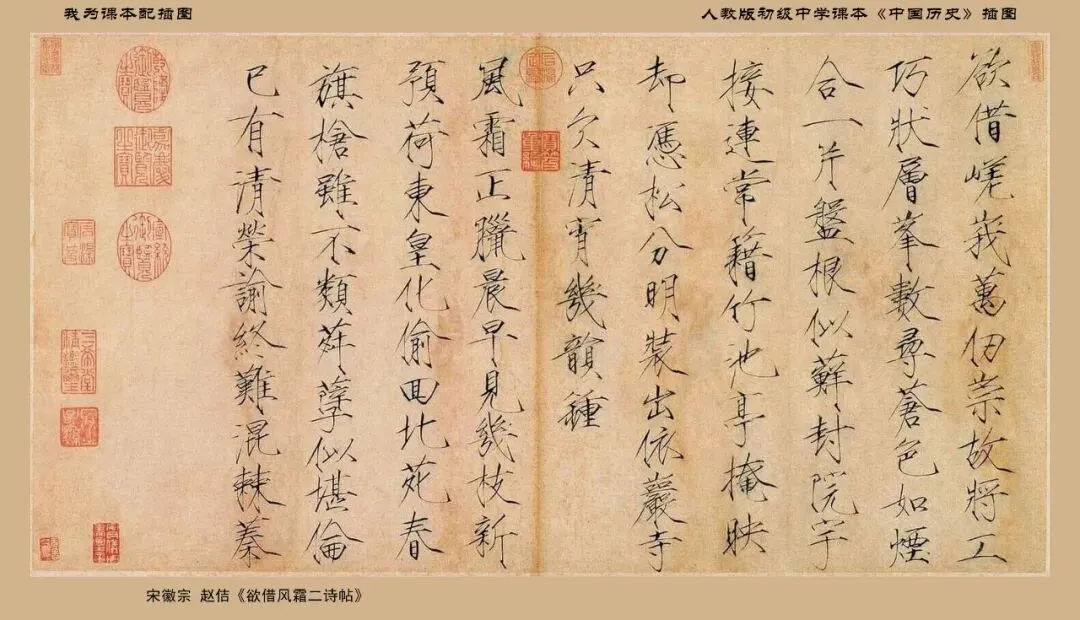 我为课本配插图
人教版初级中学课本《中国历史》插图
欲借嵯峩萬仞崇故將工
巧狀層峯數尋蒼色如煙
合一片盤根似蘚封院宇
接連常藉竹池亭掩映
却憑松分明裝出依巖寺
只欠清宵幾韻鍾
風霜正臘晨早見幾枝新
預荷東皇化偷回比苑春
旗槍雖不類荈孽似堪倫
已有清榮諭終難混棘蓁
宋徽宗 赵佶《欲借风霜二诗帖》